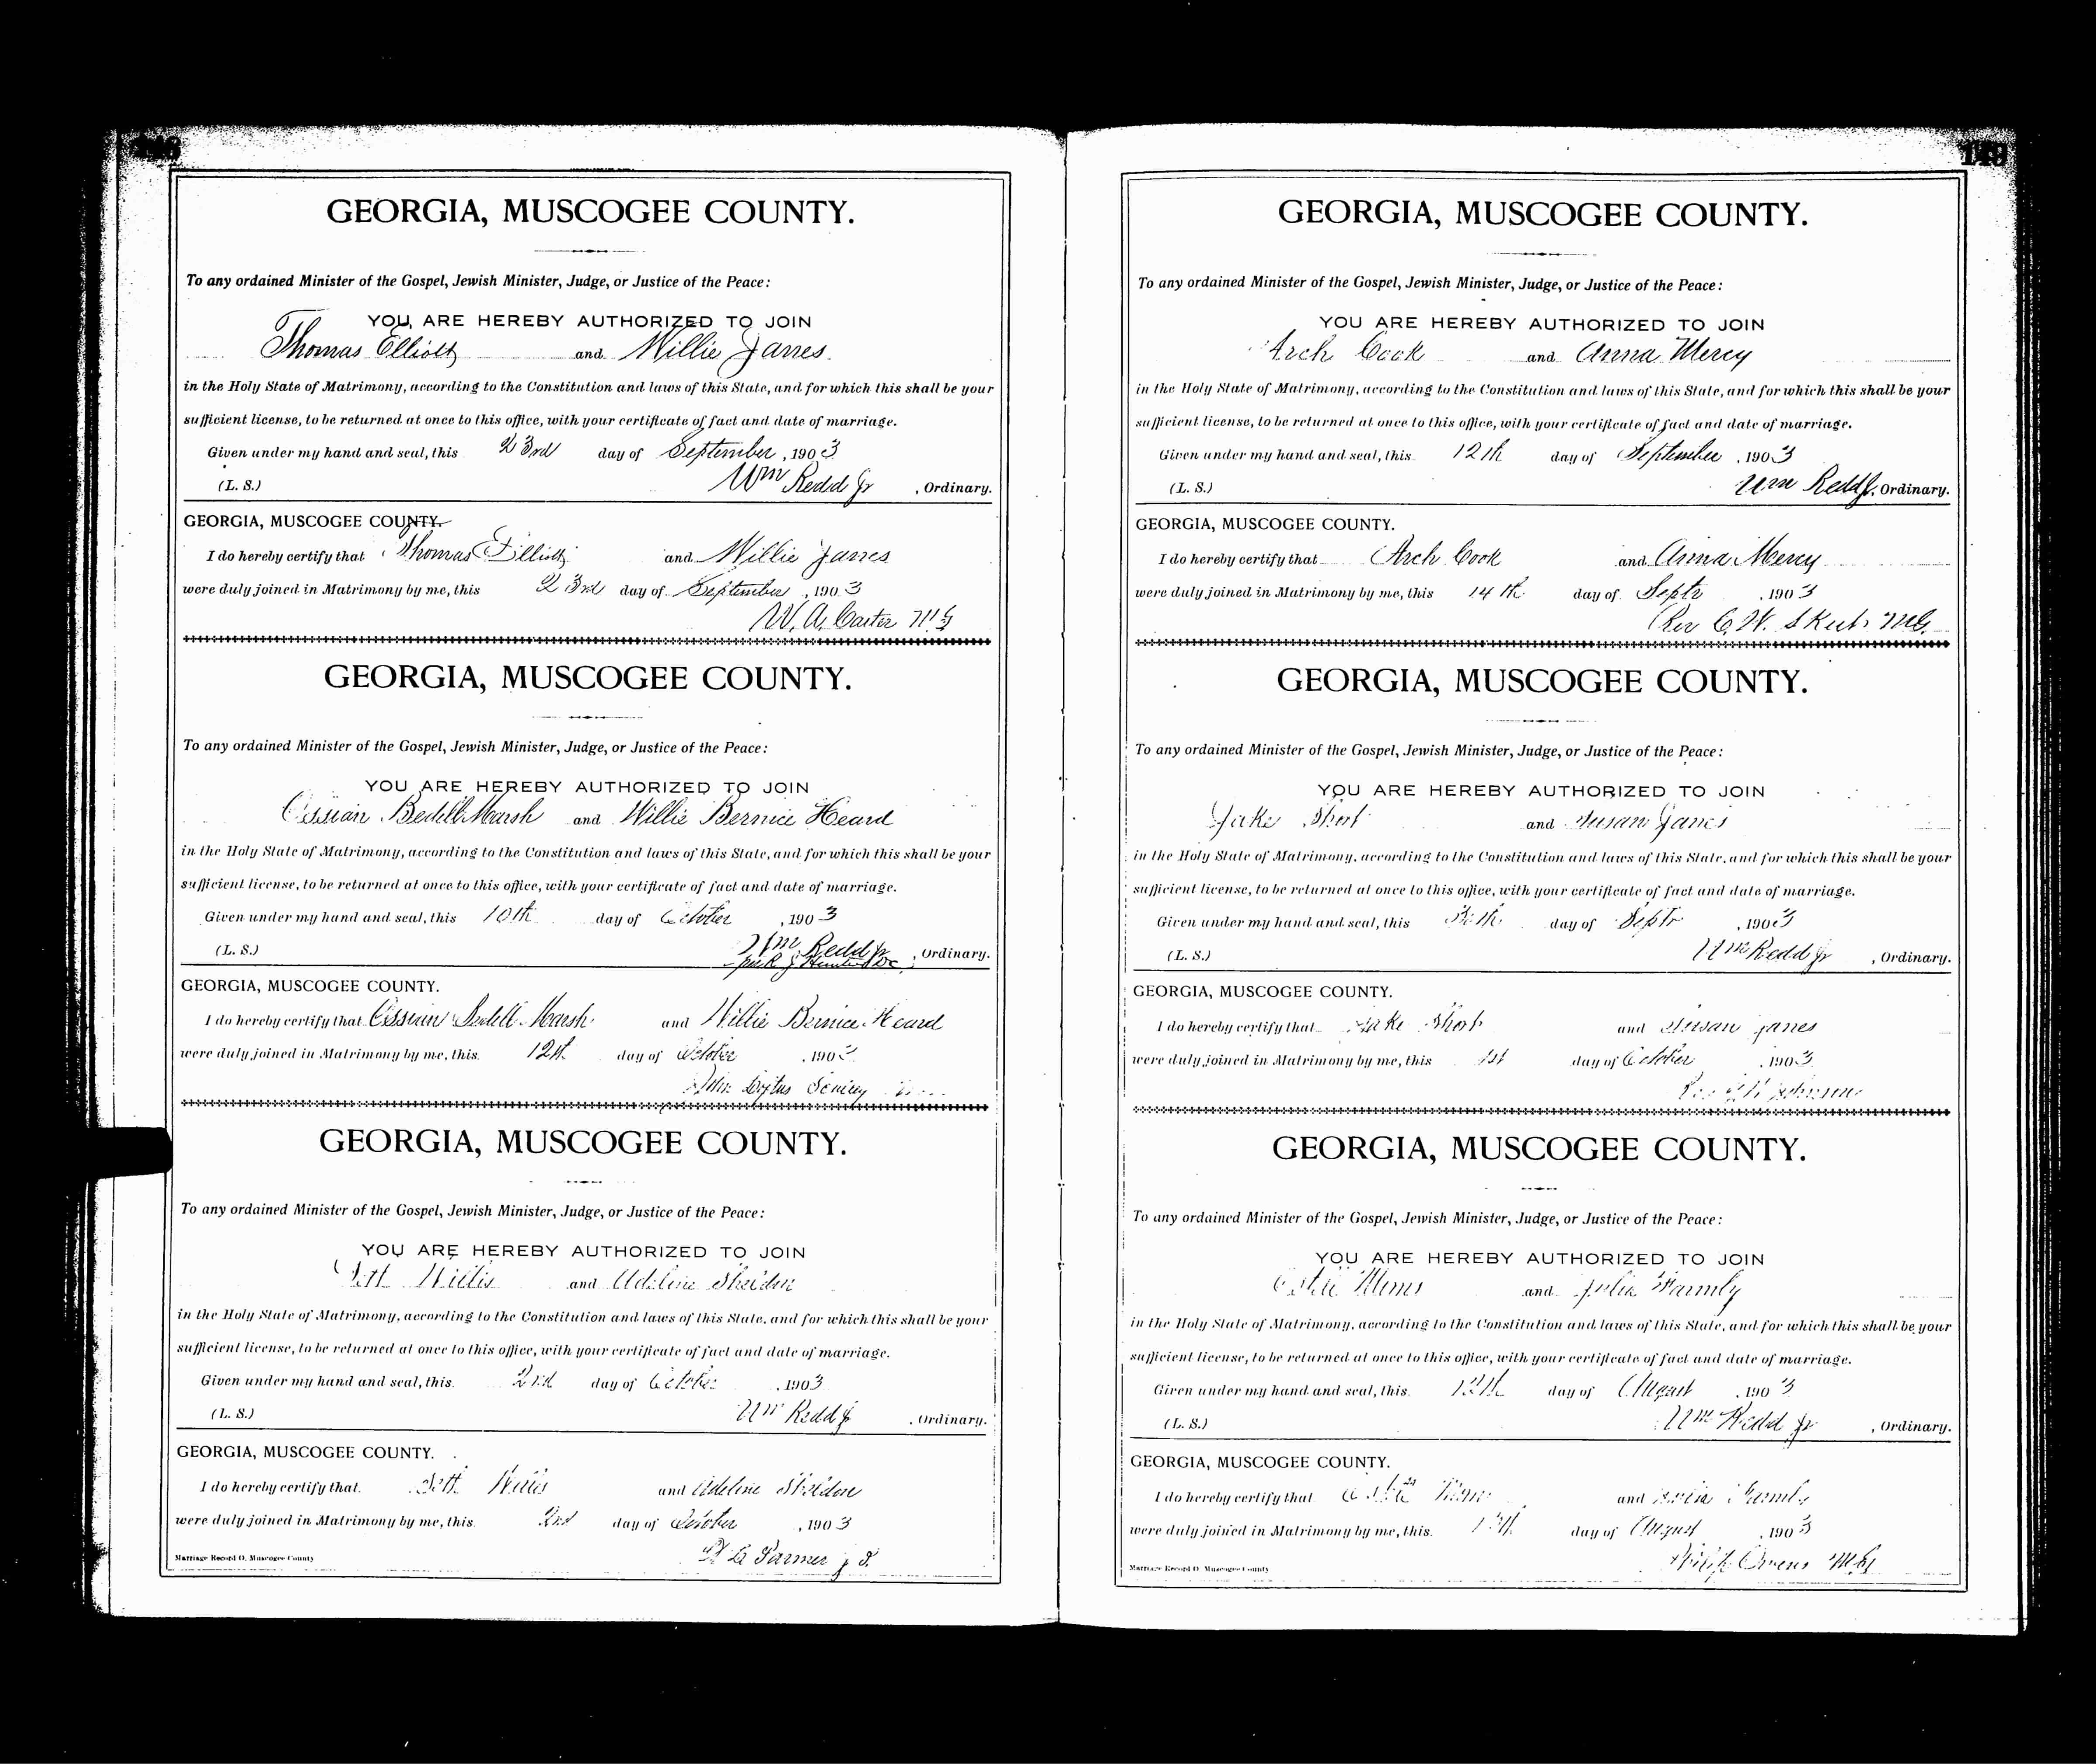 GEORGIA, MUSCOGEE COUNTY.
To any ordained Minister of the Gospel, Jewish Minister, Judge, or Justice of the Peace:
YOU ARE HEREBY AUTHORIZED TO JOIN
Thomas Elliott and Willie Janes
in the Holy State of Matrimony, according to the Constitution and laws of this State, and for which this shall be your
sufficient license, to be returned at once to this office, with your certificate of fact and date of marriage.
Given under my hand and seal, this 23rd day of September, 1903
(L. S.) Wm Redd Jr, Ordinary.
GEORGIA, MUSCOGEE COUNTY.
I do hereby certify that Thomas Elliott and Willie Janes
were duly joined in Matrimony by me, this 23rd day of September, 1903
W. A. Carter M G
GEORGIA, MUSCOGEE COUNTY.
To any ordained Minister of the Gospel, Jewish Minister, Judge, or Justice of the Peace:
YOU ARE HEREBY AUTHORIZED TO JOIN
Ossian Bedell Marsh and Willie Bernice Heard
in the Holy State of Matrimony, according to the Constitution and laws of this State, and for which this shall be your
sufficient license, to be returned at once to this office, with your certificate of fact and date of marriage.
Given under my hand and seal, this 10th day of October, 1903
(L. S.) Wm Redd Jr, Ordinary.
GEORGIA, MUSCOGEE COUNTY.
I do hereby certify that Ossian Bedell Marsh and Willie Bernice Heard
were duly joined in Matrimony by me, this 12th day of October, 1903
GEORGIA, MUSCOGEE COUNTY.
To any ordained Minister of the Gospel, Jewish Minister, Judge, or Justice of the Peace:
YOU ARE HEREBY AUTHORIZED TO JOIN
Willis and Adeline Sheldon
in the Holy State of Matrimony, according to the Constitution and laws of this State, and for which this shall be your
sufficient license, to be returned at once to this office, with your certificate of fact and date of marriage.
Given under my hand and seal, this 2nd day of October, 1903
(L. S.) Wm Redd Jr, Ordinary.
GEORGIA, MUSCOGEE COUNTY.
I do hereby certify that Willis and Adeline Sheldon
were duly joined in Matrimony by me, this 2nd day of October, 1903
Parmer J P
Marriage Record O. Muscogee County
149
GEORGIA, MUSCOGEE COUNTY.
To any ordained Minister of the Gospel, Jewish Minister, Judge, or Justice of the Peace:
YOU ARE HEREBY AUTHORIZED TO JOIN
Arch Cook and Anna Mercy
in the Holy State of Matrimony, according to the Constitution and laws of this State, and for which this shall be your
sufficient license, to be returned at once to this office, with your certificate of fact and date of marriage.
Given under my hand and seal, this 12th day of September, 1903
(L. S.) Wm Redd Jr, Ordinary.
GEORGIA, MUSCOGEE COUNTY.
I do hereby certify that Arch Cook and Anna Mercy
were duly joined in Matrimony by me, this 14th day of Septr, 1903
Rev C. W. MG.
GEORGIA, MUSCOGEE COUNTY.
To any ordained Minister of the Gospel, Jewish Minister, Judge, or Justice of the Peace:
YOU ARE HEREBY AUTHORIZED TO JOIN
Jake Short and Susan Janes
in the Holy State of Matrimony, according to the Constitution and laws of this State, and for which this shall be your
sufficient license, to be returned at once to this office, with your certificate of fact and date of marriage.
Given under my hand and seal, this 30th day of Septr, 1903
(L. S.) Wm Redd Jr, Ordinary.
GEORGIA, MUSCOGEE COUNTY.
I do hereby certify that Jake Short and Susan Janes
were duly joined in Matrimony by me, this 1st day of October, 1903
Johnson
GEORGIA, MUSCOGEE COUNTY.
To any ordained Minister of the Gospel, Jewish Minister, Judge, or Justice of the Peace:
YOU ARE HEREBY AUTHORIZED TO JOIN
Mims and Julia
in the Holy State of Matrimony, according to the Constitution and laws of this State, and for which this shall be your
sufficient license, to be returned at once to this office, with your certificate of fact and date of marriage.
Given under my hand and seal, this day of August, 1903
(L. S.) Wm Redd Jr, Ordinary.
GEORGIA, MUSCOGEE COUNTY.
I do hereby certify that Mims and
were duly joined in Matrimony by me, this day of August, 1903
Owens M G
Marriage Record O. Muscogee County